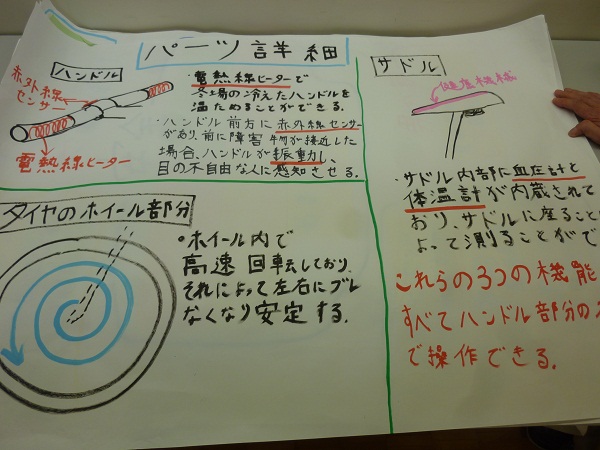 パーツ詳細
ハンドル
赤外線
センサー
電熱線ヒーター
・電熱線ヒーターで
冬場の冷えたハンドルを
温ためることができる。
・ハンドル前方に赤外線センサー
があり、前に障害物が接近した
場合、ハンドルが振動し、
目の不自由な人に感知させる。
タイヤのホイール部分
・ホイール内で
高速回転しており、
それによって左右にブレ
なくなり安定する。
サドル
健康機械
・サドル内部に血圧計と
体温計が内蔵されて
おり、サドルに座ること
よって測ることがで
これらの3つの機能
すべてハンドル部分の
で操作できる。